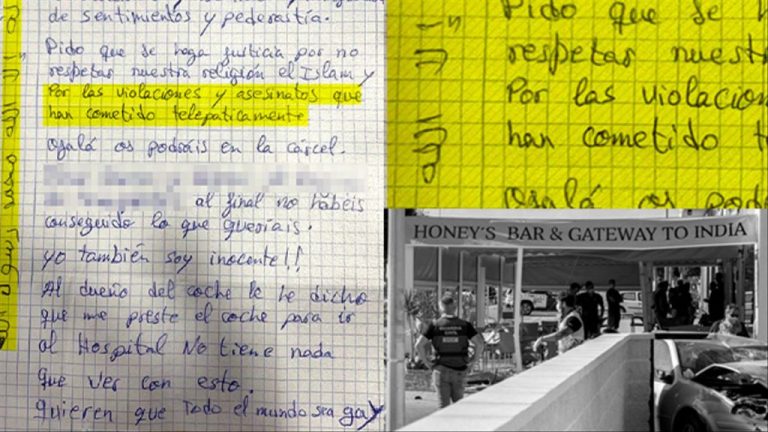 de sentimientos y pederastia.
Pido que se haga justicia por no
respetar nuestra religión el Islam y
Por las violaciones y asesinatos que
han cometido telepaticamente
ogalá os podráis en la cárcel.
al final no habéis
conseguido lo que queríais.
yo también soy inocente!!
Al dueño del coche le he dicho
que me preste el coche para ir
al Hospital No tiene nada
que ver con esto.
quieren que Todo el mundo sea gay
الا الله محمد رسول الله
Pido que se h
respetar nuestr
Por las violacion
han cometido t
ogalá os pod
الله
HONEY'S BAR & GATEWAY TO INDIA
GUARDIA
CIVIL